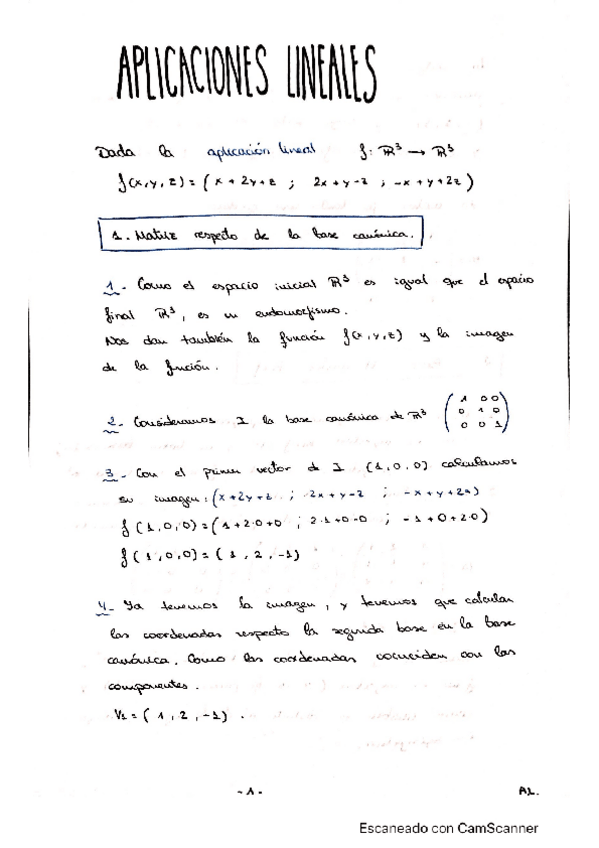 APLICACIONES LINEALES
Dada la aplicación lineal f: ℝ³ → ℝ³
f(x,y,z) = (x + 2y+z ; 2x + y-z ; -x + y + 2z)
1. Matriz respecto de la base canónica.
1.- Como el espacio inicial ℝ³ es igual que el espacio
final ℝ³, es un endomorfismo.
Nos dan también la función f(x,y,z) y la imagen
de la función.
2.- Consideramos I la base canónica de ℝ³ (1 0 0
0 1 0
0 0 1)
3.- Con el primer vector de I (1,0,0) calculamos
su imagen: (x+2y+z ; 2x+y-z ; -x+y+2z)
f(1,0,0) = (1+2·0+0 ; 2·1+0-0 ; -1+0+2·0)
f(1,0,0) = (1, 2, -1)
4.- Ya tenemos la imagen, y tenemos que calcular
las coordenadas respecto la segunda base en la base
canónica. Como las coordenadas coinciden con las
componentes.
V1 = (1, 2, -1).
-1-
AL.
Escaneado con CamScanner